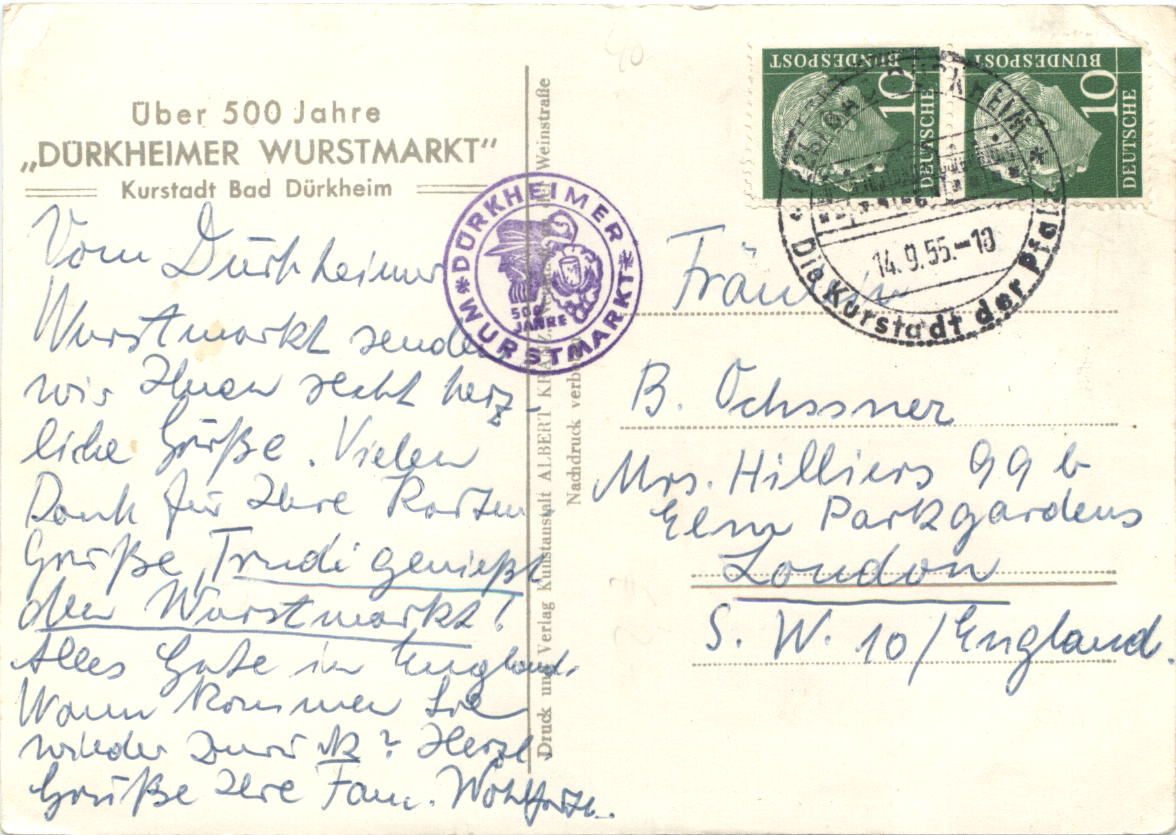 Über 500 Jahre
„DÜRKHEIMER WURSTMARKT"
Kurstadt Bad Dürkheim
Vom Dürkheimer
Wurstmarkt senden
wir Ihnen recht herz-
liche Grüße. Vielen
Dank für Ihre Karten
Grüße, Trudi genießt
den Wurstmarkt!
Alles Gute in England.
Wann kommen Sie
wieder zurück? Herzl.
Grüße Ihre Fam. Wohlfarth.
DÜRKHEIMER
WURSTMARKT
500
JAHRE
Druck und Verlag Kunstanstalt ALBERT
Weinstraße
Nachdruck verb
DEUTSCHE
BUNDESPOST
10
DEUTSCHE
BUNDESPOST
10
DÜRKHEIM
14.9.55.-10
Die Kurstadt der Pfalz
Fräulein
B. Ochssner
Mrs. Hilliers 99 b
Elm Parkgardens
London
S. W. 10/England.
40